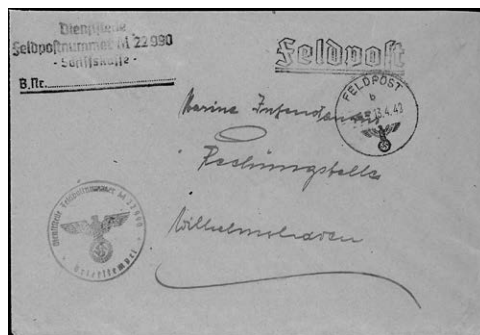 Dienststelle
Feldpostnummer M 22 990
- Schiffskasse -
B.Nr.
Feldpost
FELDPOST
b
13.4.43
Marine Intendantur
Rechnungstelle
Wilhelmshaven
Dienststelle Feldpostnummer M 22990
Briefstempel